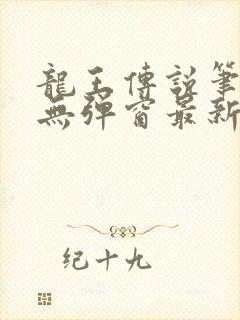 龍王傳說筆
無彈窗最新
纪十九